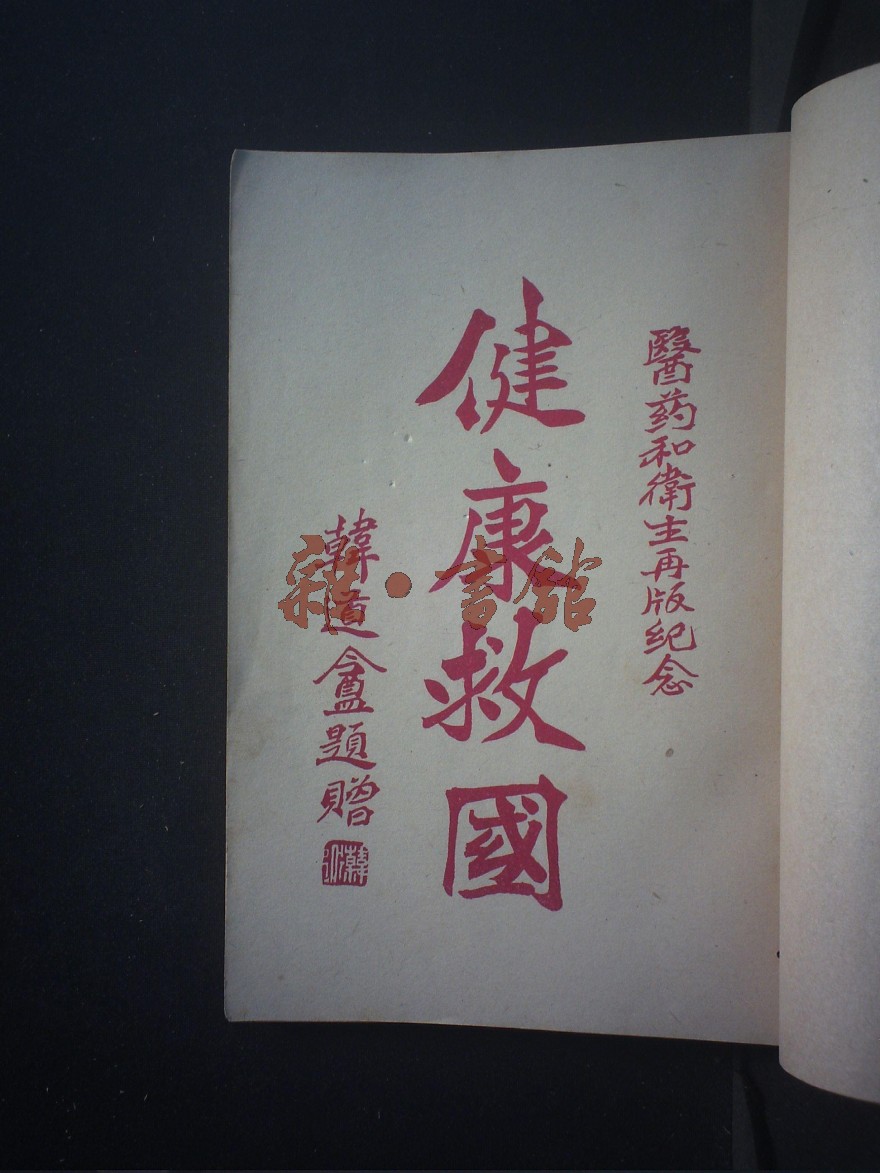 醫药和衛生再版纪念
健康救國
韓道盦題贈
雜·書館